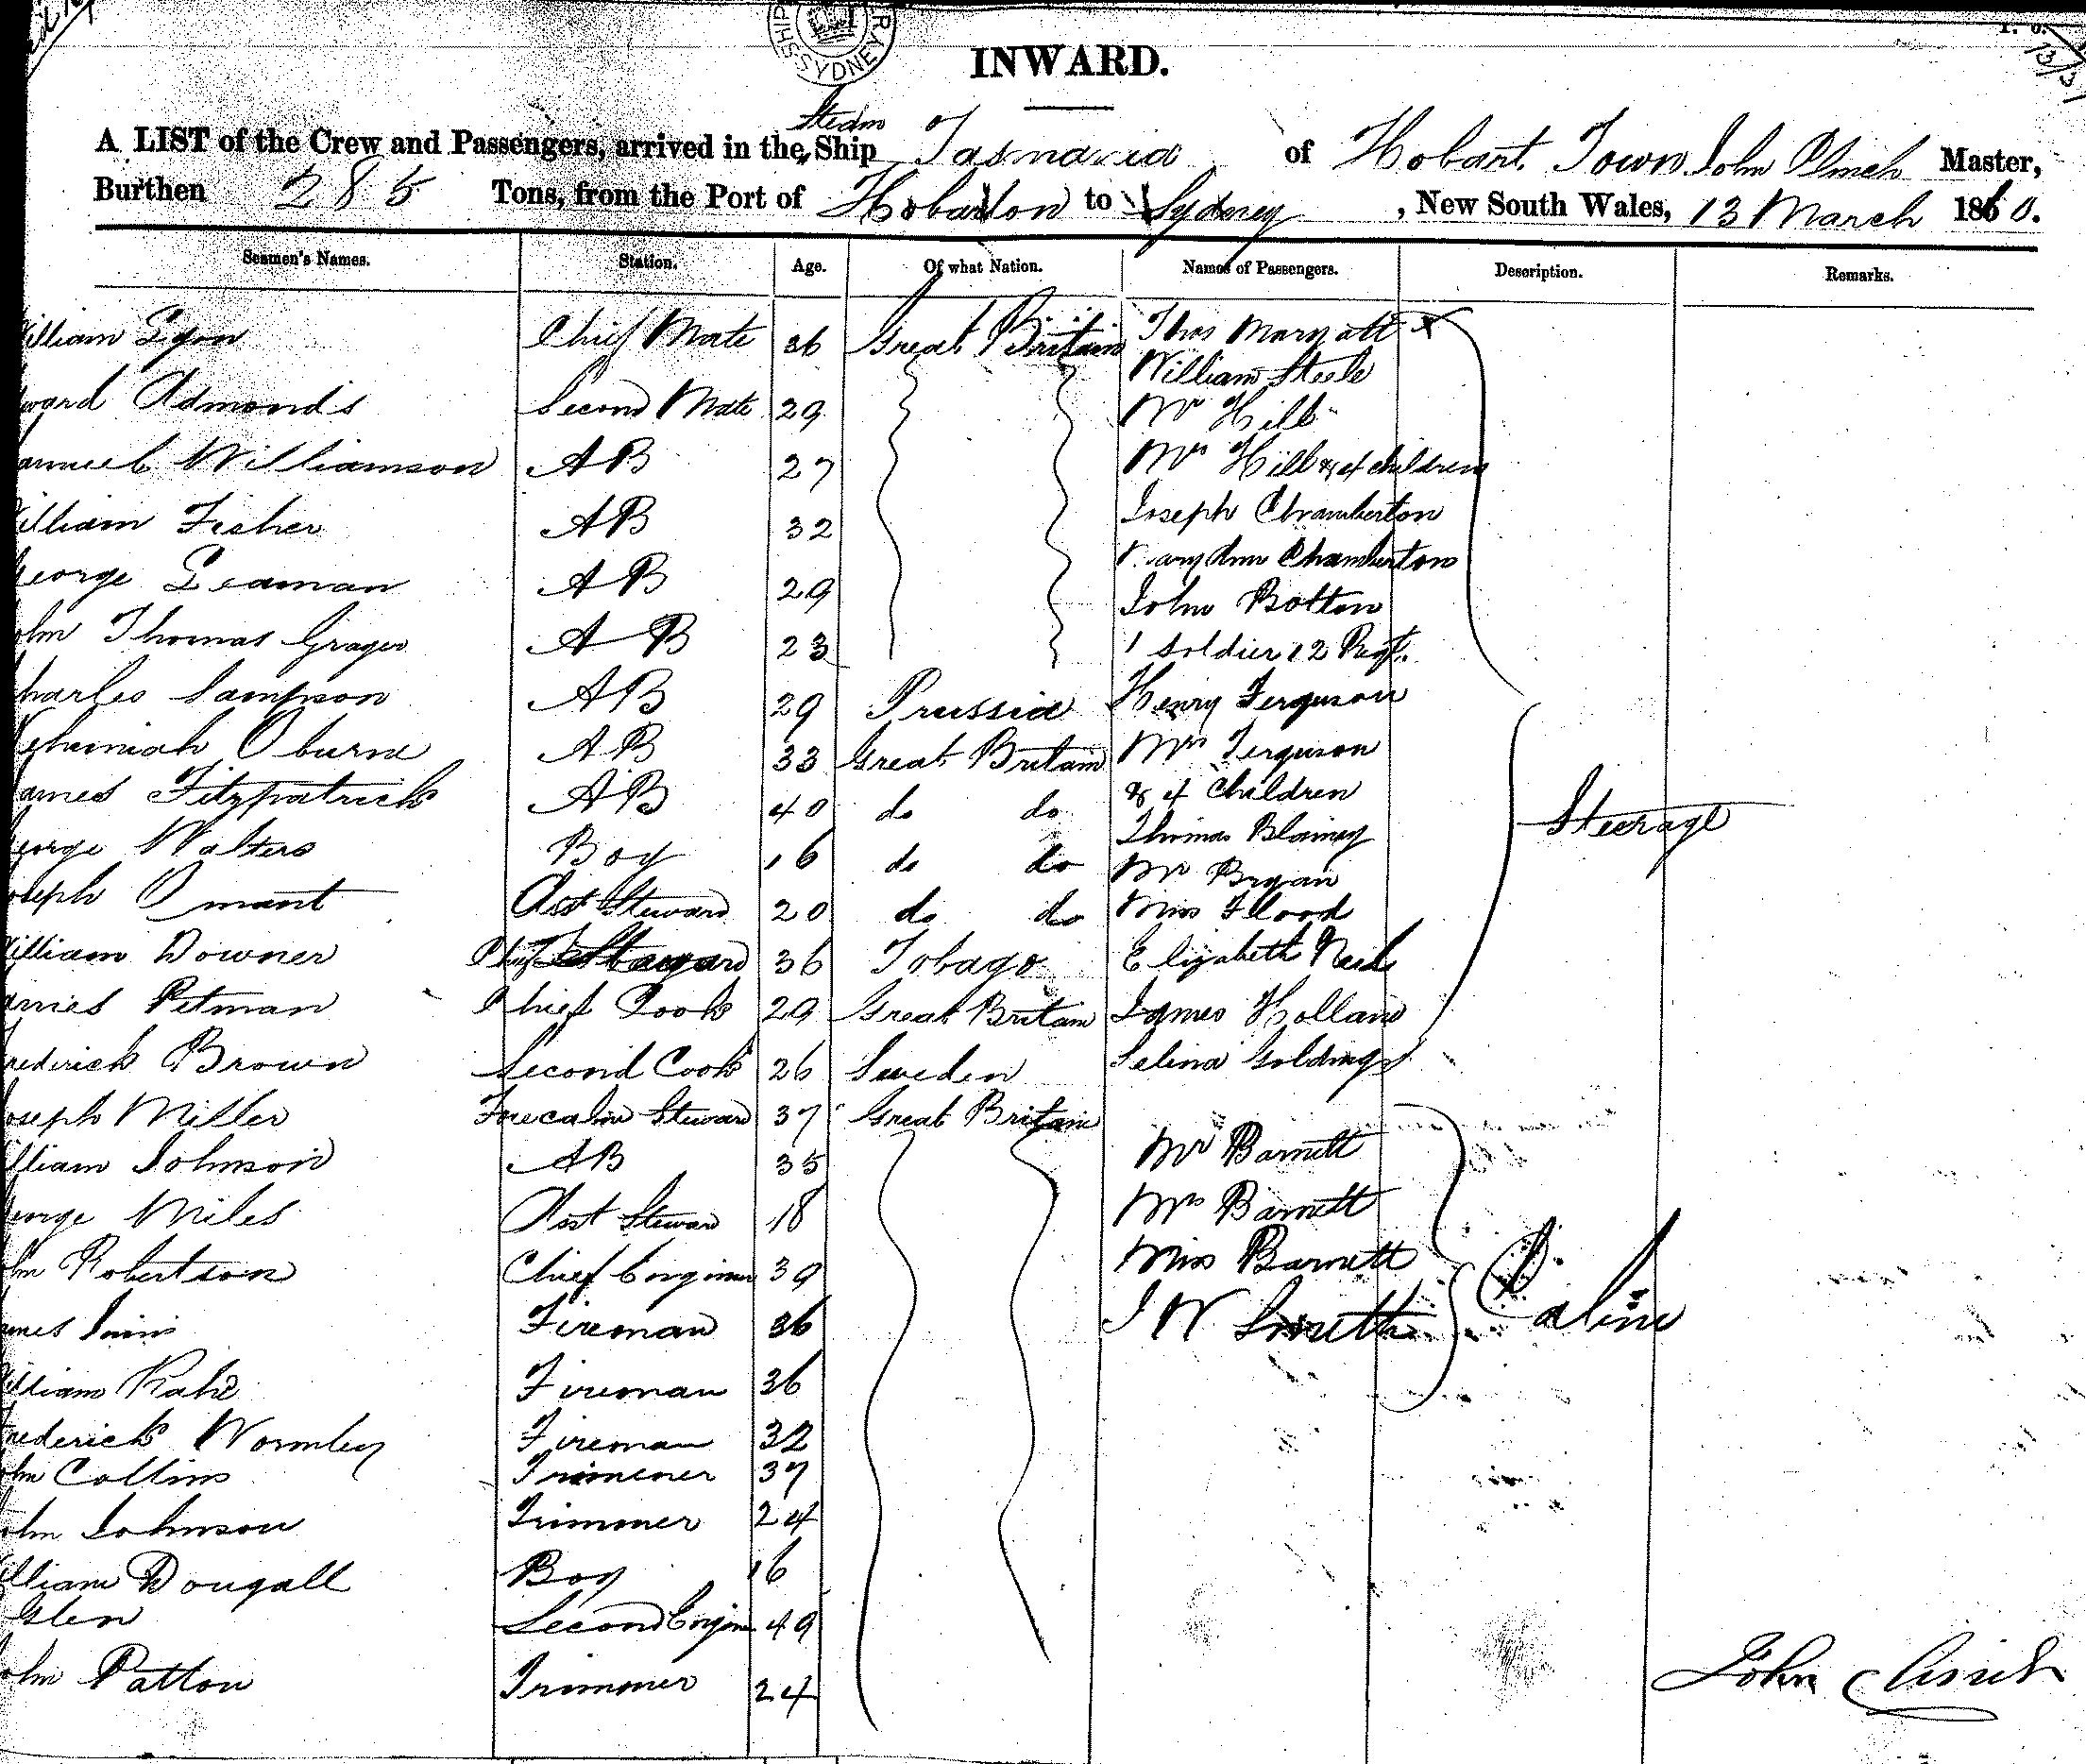 INWARD.
Steam
A LIST of the Crew and Passengers, arrived in the Ship Tasmania of Hobart Town John Clinch Master,
Burthen 285 Tons, from the Port of Hobarton to Sydney, New South Wales, 13 March 1860.
Seamen's Names. Station. Age. Of what Nation. Names of Passengers. Description. Remarks.
illiam Lyon Chief Mate 36 Great Britain Thos Maryatt
William Steele
ward Admonds Second Mate 29 Mr Hill
amuel Williamson AB 27 Mrs Hill & 4 children
illiam Fisher AB 32 Joseph Chamberton
ary Ann Chamberton
eorge Leaman AB 29 John Bolton
ohn Thomas Grager AB 23 1 Soldier 12 Regt.
harles Sampson AB 29 Prussia Henry Ferguson
ehemiah Oburne AB 33 Great Britain Mrs Ferguson
ames Fitzpatrick AB 40 do do & 4 Children
Steerage
eorge Walters Boy 16 do do Thomas Blainey
Mr Bryan
oseph Omant Asst Steward 20 do do Miss Flood
illiam Downer Chief Steward 36 Tobago Elizabeth
ames Petman Chief Cook 29 Great Britain James Holland
rederick Brown Second Cook 26 Sweden Selina Goldings
oseph Miller Forecabin Steward 37 Great Britain
illiam Johnson AB 35 Mr Barnett
eorge Miles Asst Steward 18 Mrs Barnett
ohn Robertson Chief Engineer 39 Miss Barnett
ames Fireman 36 J W Smith Cabin
illiam Fireman 36
rederick Wormley Fireman 32
ohn Collins Trimmer 37
ohn Johnson Trimmer 24
illiam Dougall Boy 16
Glen Second Engine 49
ohn Patton Trimmer 24 John Clinch